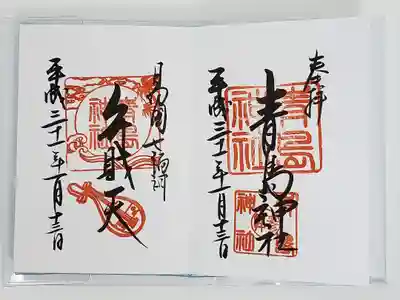 奉拝
青島神社
平成三十一年一月十三日
青島神社
日向国七福神
弁財天
平成三十一年一月十三日
青島神社